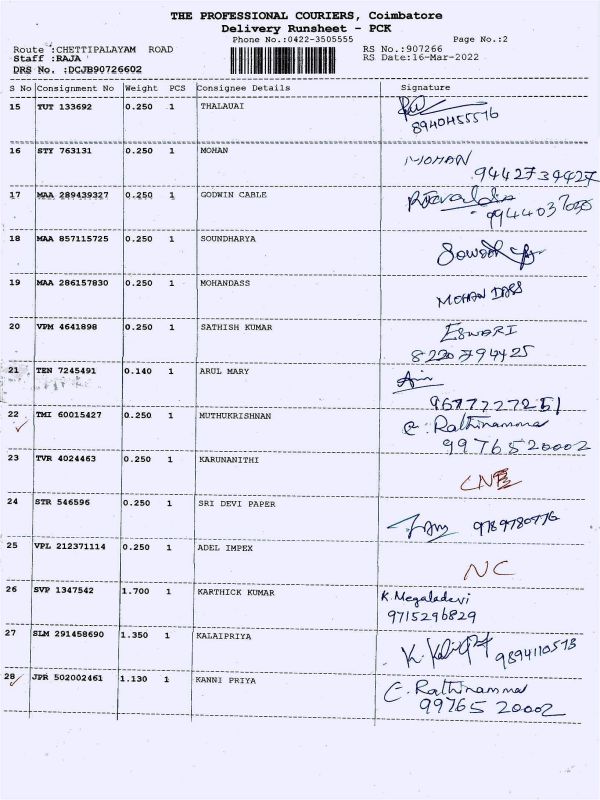 THE PROFESSIONAL COURIERS, Coimbatore
Delivery Runsheet - PCK
Phone No.:0422-3505555 Page No.:2
Route :CHETTIPALAYAM ROAD RS No.:907266
Staff :RAJA RS Date:16-Mar-2022
DRS No. :DCJB90726602
S No Consignment No Weight PCS Consignee Details Signature
15 TUT 133692 0.250 1 THALAUAI
8940455516
16 STY 763131 0.250 1 MOHAN MOHAN
9442739427
17 MAA 289439327 0.250 1 GODWIN CABLE
9944037030
18 MAA 857115725 0.250 1 SOUNDHARYA
19 MAA 286157830 0.250 1 MOHANDASS MOHAN DASS
20 VPM 4641898 0.250 1 SATHISH KUMAR ESWARI
8220794425
21 TEN 7245491 0.140 1 ARUL MARY
9677727251
22 TMI 60015427 0.250 1 MUTHUKRISHNAN C. Rathinamma
9976520002
23 TVR 4024463 0.250 1 KARUNANITHI
24 STR 546596 0.250 1 SRI DEVI PAPER 9789780776
25 VPL 212371114 0.250 1 ADEL IMPEX NC
26 SVP 1347542 1.700 1 KARTHICK KUMAR K. Megaladevi
9715296829
27 SLM 291458690 1.350 1 KALAIPRIYA 9894110513
28 JPR 502002461 1.130 1 KANNI PRIYA C. Rathinamma
99765 20002